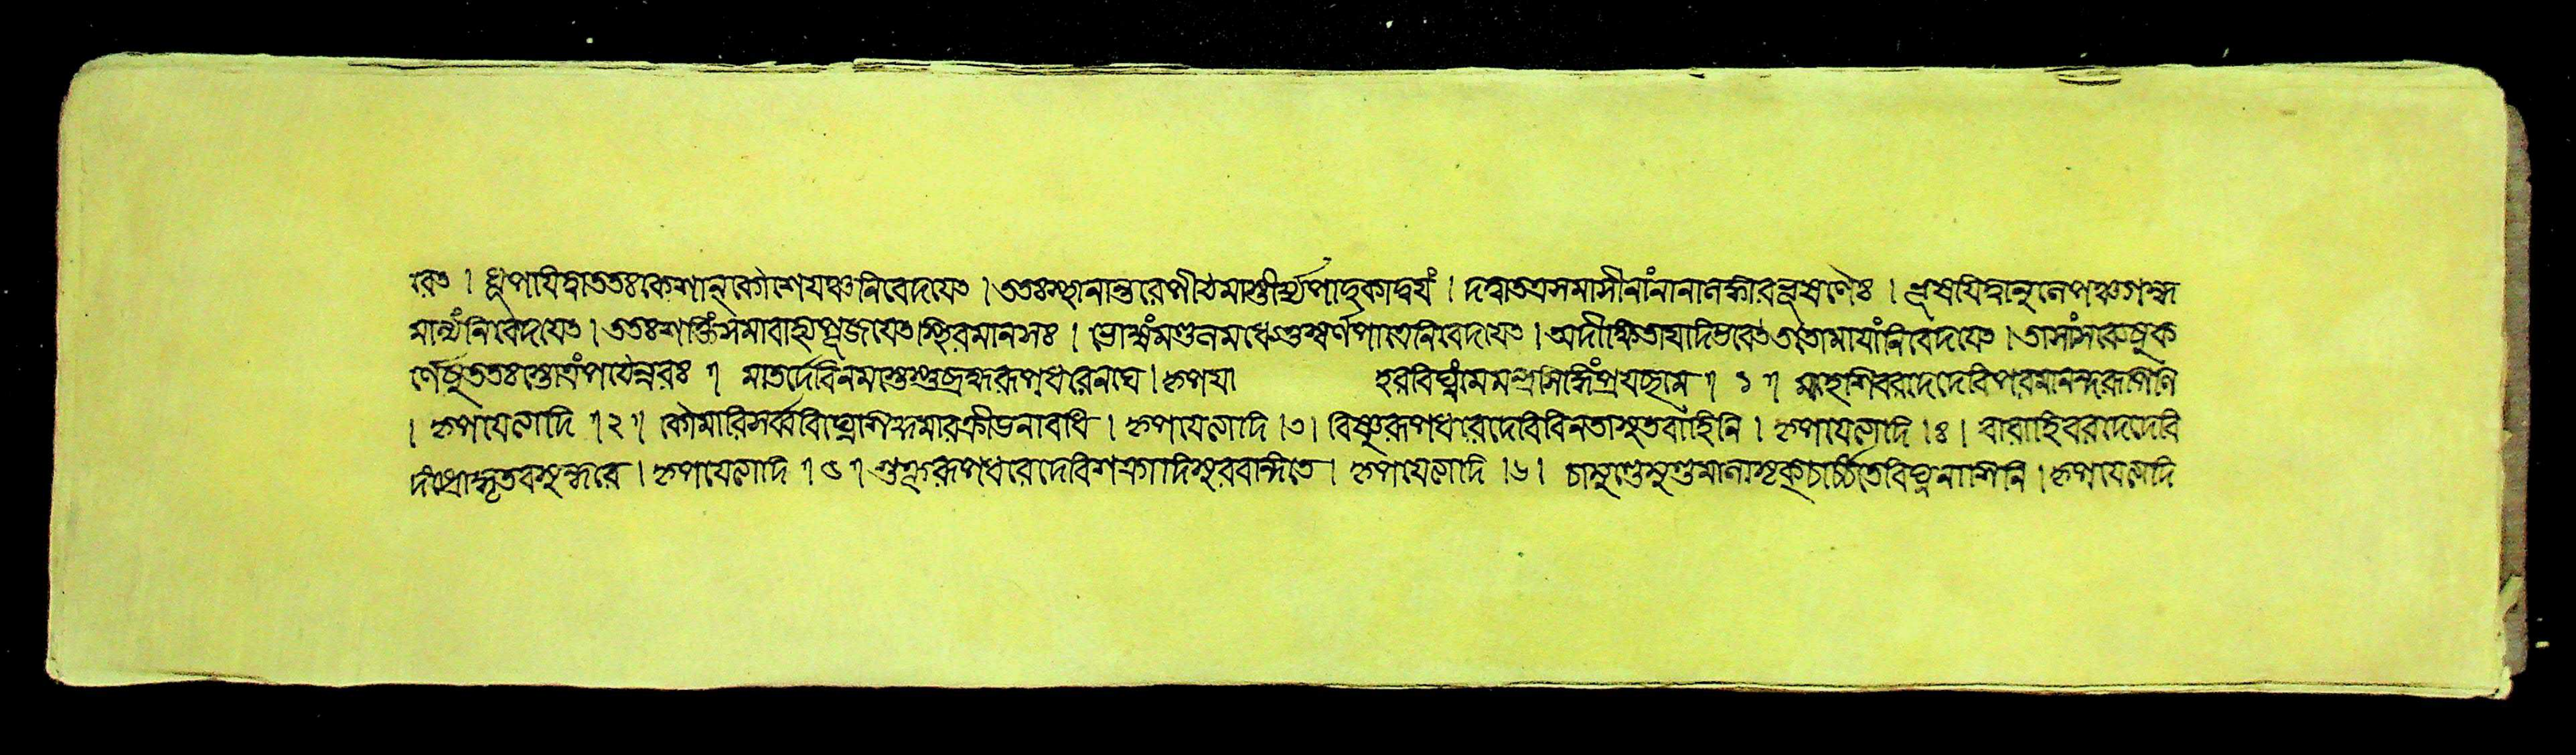 রেৎ । ধূপাযিত্বা ততঃ কেশান্ কৌশেযঞ্চ নিবেদযেৎ । ততঃ স্থানান্তরে পীঠমাস্তীর্য্য পাদুকাদ্বযং । দত্বা তত্র সমাসীনাং নানালঙ্কারভূষণৈঃ । ভূষযিত্বানুলেপঞ্চ গন্ধ
মাল্যং নিবেদযেৎ । ততঃ শক্তিং সমাবাহ্য পূজযেৎ স্থিরমানসঃ । ভোজ্যং মণ্ডলমধ্যে তু স্বর্ণপাত্রে নিবেদযেৎ । অদীক্ষিতা যদি ভবেৎ ততো মাযাং নিবেদযেৎ । তাসাং সর্বেষু ক
র্ণেষু ততঃ স্তোত্রং পঠেন্নরঃ ॥ মাতর্দেবি নমস্তেস্তু ব্রহ্মরূপধরেনঘে । কৃপযা হর বিঘ্নং মে মন্ত্রসিদ্ধিং প্রযচ্ছ মে ॥ ১ ॥ মাহেশি বরদে দেবি পরমানন্দরূপিণি
। কৃপযেত্যাদি ॥ ২ ॥ কৌমারি সর্ব্ববিঘ্নেশি কুমারক্রীডনে । কৃপযেত্যাদি । ৩ । বিষ্ণুরূপধরে দেবি বিনতাসুতবাহিনি । কৃপযেত্যাদি । ৪ । বারাহি বরদে দেবি
দংষ্ট্রোদ্ধৃতবসুন্ধরে । কৃপযেত্যাদি ॥ ৫ ॥ শক্ররূপধরে দেবি শক্রাদিসুরবন্দিতে । কৃপযেত্যাদি । ৬ । চামুণ্ডে মুণ্ডমালাসৃক্চর্চ্চিতে বিঘ্ননাশিনি । কৃপযেত্যাদি